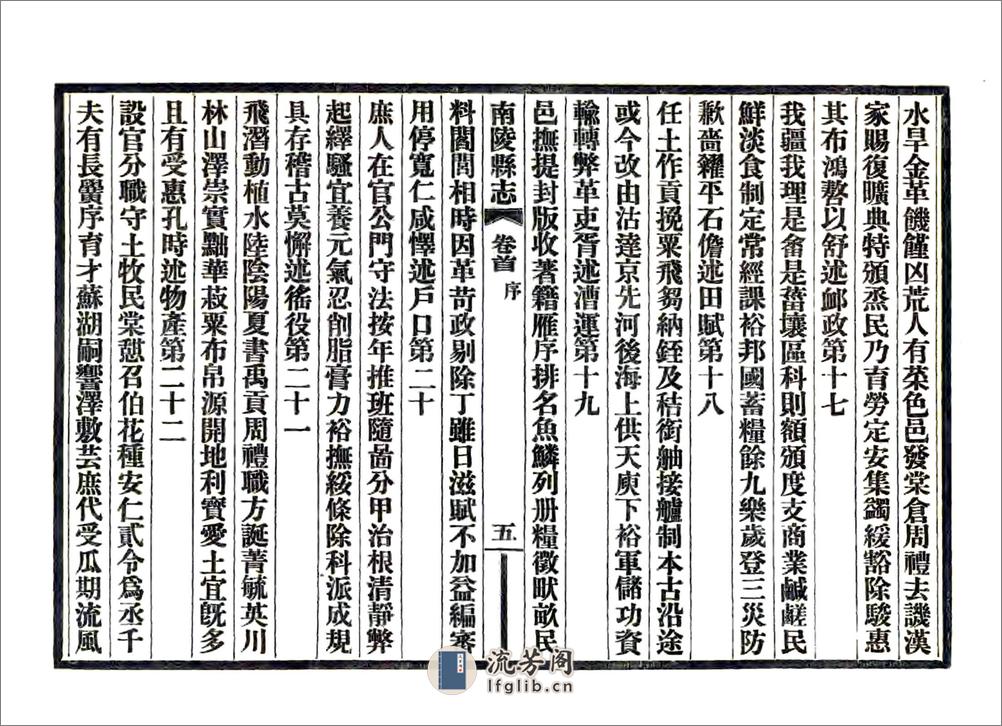 水旱金革饑饉凶荒人有菜色邑發棠倉周禮去譏漢
家賜復曠典特頒烝民乃育勞定安集蠲緩豁除駿惠
其布鴻嗸以舒述卹政第十七
我疆我理是畬是菑壤區科則額頒度支商業鹹鹺民
鮮淡食制定常經課裕邦國蓄糧餘九樂歲登三災防
歉嗇糴平石儋述田賦第十八
任土作貢挽粟飛芻納銍及秸銜舳接艫制本古沿途
或今改由沽達京先河後海上供天庾下裕軍儲功資
輸轉弊革吏胥述漕運第十九
邑撫提封版收著籍雁序排名魚鱗列册糧徵畎畝民
南陵縣志
卷首
序
五
料閭閻相時因革苛政剔除丁雖日滋賦不加益編審
用停寬仁咸懌述戸口第二十
庶人在官公門守法按年推班隨啚分甲治根清靜弊
起繹騷宜養元氣忍削脂膏力裕撫綏條除科派成規
具存稽古莫懈述徭役第二十一
飛潛動植水陸陰陽夏書禹貢周禮職方誕菁毓英川
林山澤崇實黜華菽粟布帛源開地利寶愛土宜旣多
且有受惠孔時述物產第二十二
設官分職守土牧民棠憇召伯花種安仁貳令爲丞千
夫有長黌序育才蘇湖嗣響澤敷芸庶代受瓜期流風
流芳阁
lfglib.cn